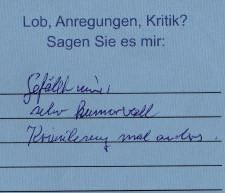 Lob, Anregungen, Kritik?
Sagen Sie es mir:
Gefällt mir,
sehr humorvoll
Krimilesung mal anders.